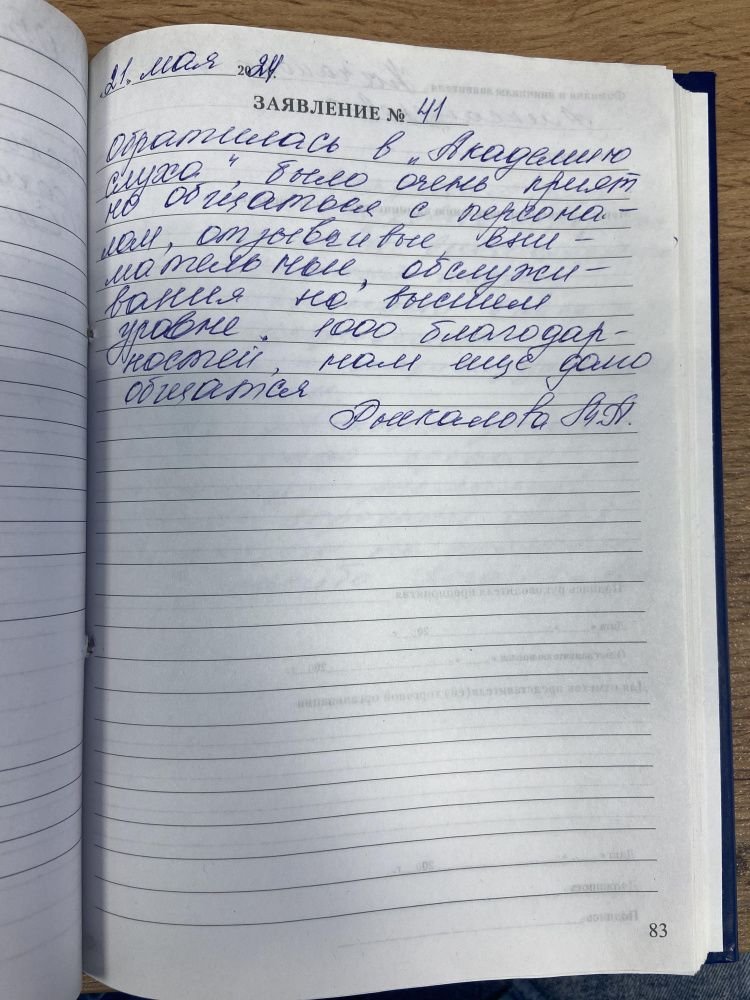 „21. мая 2024.
ЗАЯВЛЕНИЕ № 41
обратилась в „Академию
слуха", было очень прият
но общаться с персона-
лом, отзывчивые вни-
мательные, обслужи-
вания на высшем
уровне. 1000 благодар-
ностей, нам еще долго
общатся
83